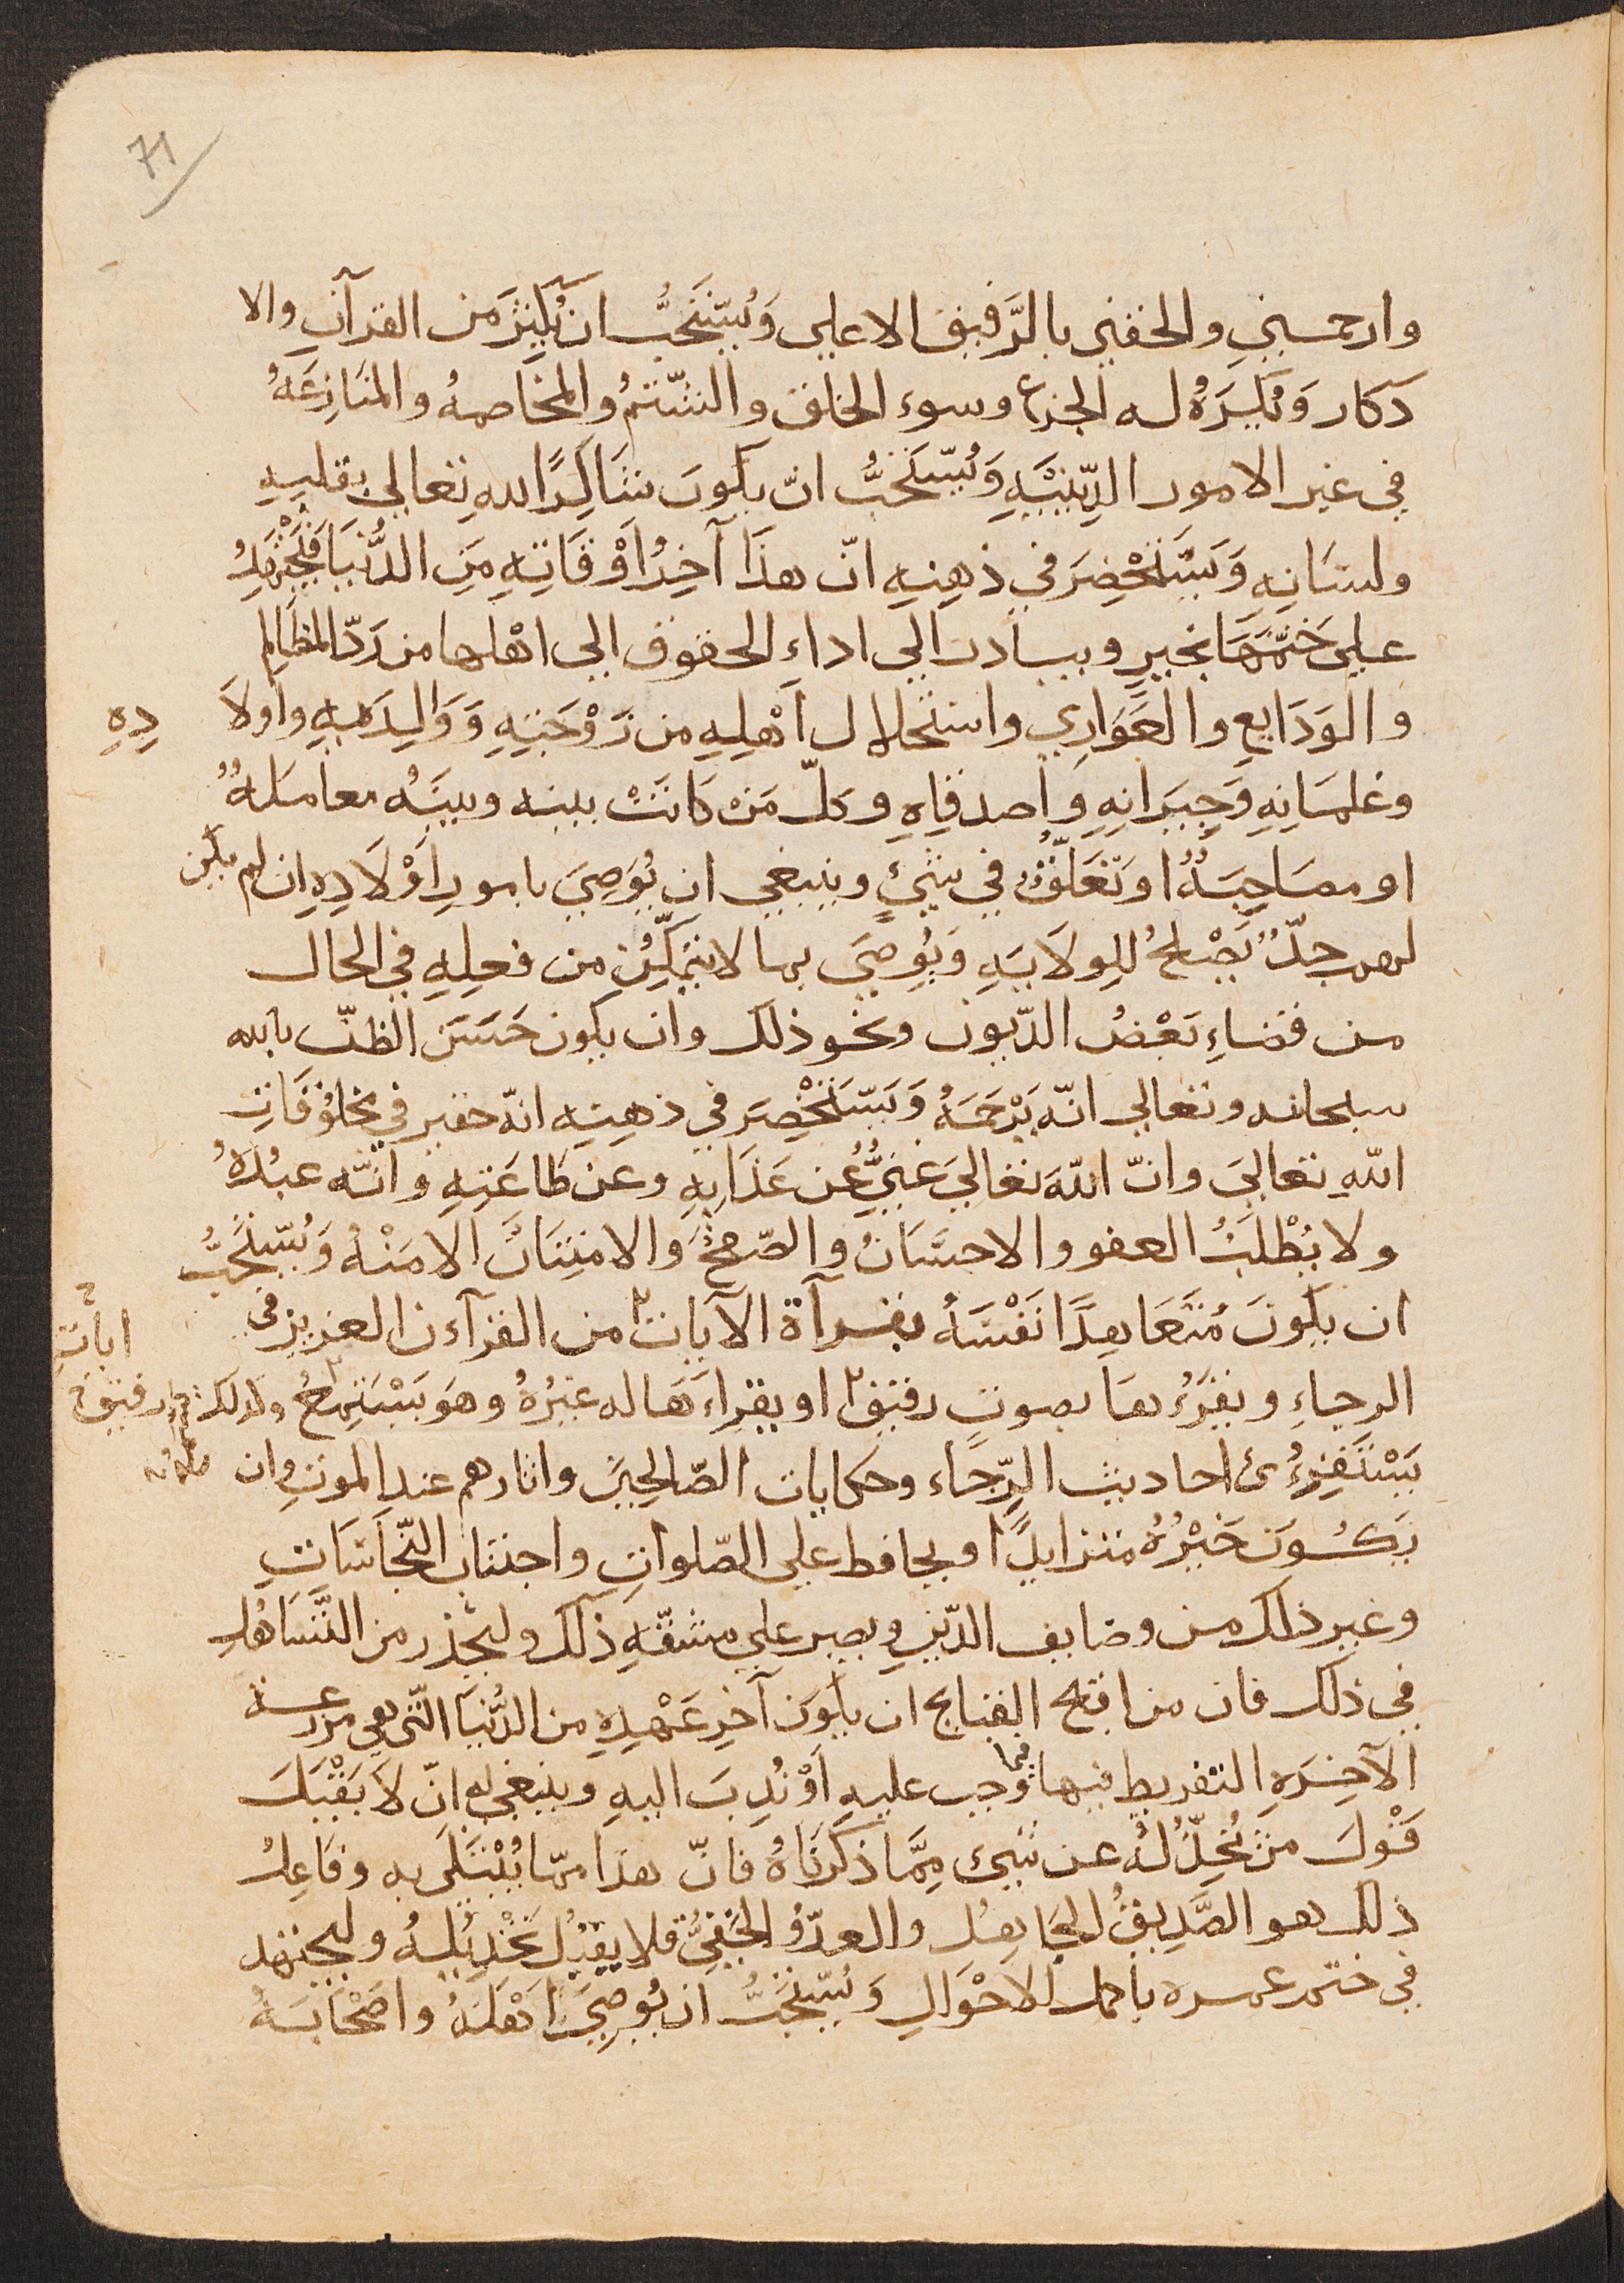 71
وارحمني والحقني بالرَّفيق الاعلي وَيُسْتَحَبُّ ان يُكثِرَ مَن القرآنِ والا
ذكار وَيُكرَهُ له الجزع وسوء الخلق والشّتمُ والمخاصمهُ والمنَازِعَهُ
في غير الامور الدِّينيَّهِ وَيُسْتَحَبُّ انّ يكونَ شَاكِرًا لله تعالي بقلبهِ
ولسَانِهِ وَيَسْتَحْضِرَ في ذهنِهِ انّ هذَا آخِرُ اَوْقَاتِهِ مَن الدُّنيَا فَيَجْتَهِدُ
علي خَتمِهَا بخيرٍ ويبادر الي اداءِ الحقوق الي اهْلها من رَدّ المظَالِم
والوَدَايعِ والعَوَارِي واستحلال اَهْلِهِ من زَوْجَتِهِ وَوَالِدَيهِ واولَا دِهِ
وغلمَانِهِ وَجِيرَانِهِ وَاصدقَاِهِ وكلّ مَنْ كانَتْ بينه وبينَهُ معامَلهُ
او مصَاحِبَهُ اوتعَلّقُ في شئٍ وينبغي ان يُوَصِيَ بامورِ اَوْلَادِهِ ان لم يكن
لهم جدّ يَصْلحُ للوِلَايَهِ وَيُوصِيَ بما لا يتمكّنُ من فعلِهِ في الحال
من قضاءِ بَعْضُ الدّيون ونحو ذلك وان يكون حَسَنَ الظنّ بالله
سبحانه وتعالي انّه يَرْحَمَهُ وَيَسْتَحْضِرَ في ذهنِهِ انّه حقير في مخلوُقَاتِ
اللّهِ تعالي وانّ اللّهَ تعالي غنيٌّ عُن عَذَابِهِ وعن طَاعَتِهِ وانّه عبدُهُ
ولا يُطْلَبُ العفو والاحسَانُ والصّفحُ والامتِنَانُ الا مَنْهُ وَيُسْتحَبُّ
ان يكونَ مُتَعَاهِدًا نَفْسَهُ بقرآة الآيات من القرآءن العزيز في ايات
الرجاءِ ويقرَءُ هَا بصوتٍ رقيق او يقراءَهَا له غيرُهُ وهوَ يَسْتمِعُ وكذلك
يَسْتَقرِءُئ احاديث الرِّجاء وحكايات الصّالحينَ واثارهم عند الموتِ وان
يَكُونَ خَيْرُهُ متزايدًا ويحافط علي الصّلواتِ واجتناب النّجاسَاتِ
وغير ذلك من وضايف الدّينِ ويصبر علي مشقّهِ ذلك وليحذر من التَّسَاهُلِ
في ذلك فان من اقبح القبايح ان يكون آخِر عَهْدِهِ من الدُّنيَا الّتي هي مزرعة
الآخِرَهِ التفريط فيها فيما وجب عليهِ اَوْ نُدِبَ اليهِ وينبغي له انّ لَا يَقْبَلَ
قَوْلَ منَ يُخذِّلُهُ عن شَيئ مِمَّا ذكرنَاهُ فانّ هذا ممّا يُبْتَلَى به وفَاعِلُ
ذلك هو الصَّدِيقُ الجَاهِل والعدّو الخَفِيُّ فلا يقبَلُ تَخْذِيلَهُ وليجتهد
في ختم عمره باكمل الاحْوَالِ وَيُسْتحَبُّ ان يُوصِيَ اَهْلَهُ واصْحَابَهُ